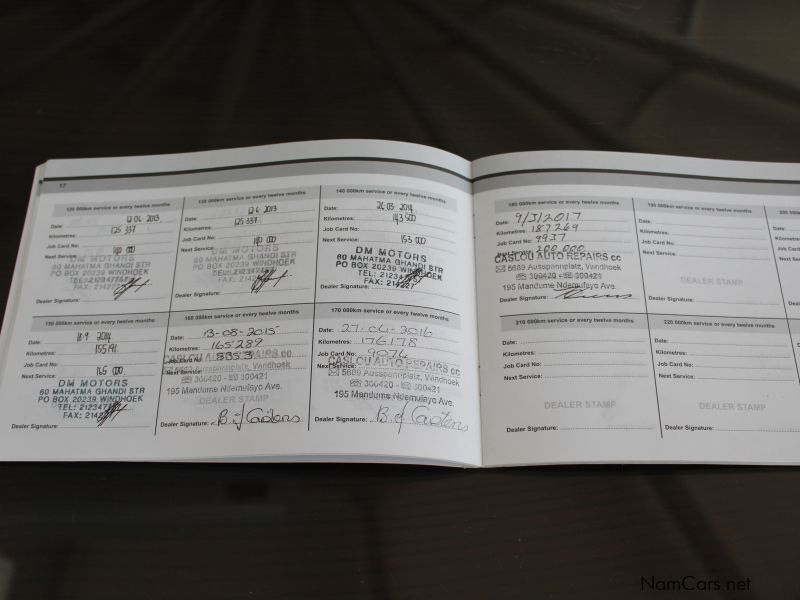 17
120 000km service or every twelve months
Date: 12-06-2013
Kilometres: 125 337
Job Card No:
Next Service: 140 000
DM MOTORS
60 MAHATMA GHANDI STR
PO BOX 20239 WINDHOEK
Dealer Signature:
130 000km service or every twelve months
Date: 12-6-2013
Kilometres: 125 337
Job Card No:
Next Service: 140 000
DM MOTORS
60 MAHATMA GHANDI STR
PO BOX 20239 WINDHOEK
Dealer Signature:
140 000km service or every twelve months
Date: 26-03-2014
Kilometres: 143 500
Job Card No:
Next Service: 153 000
DM MOTORS
60 MAHATMA GHANDI STR
PO BOX 20239 WINDHOEK
Dealer Signature:
150 000km service or every twelve months
Date: 18 9 2014
Kilometres: 155 191
Job Card No:
Next Service: 165 000
DM MOTORS
60 MAHATMA GHANDI STR
PO BOX 20239 WINDHOEK
Dealer Signature:
160 000km service or every twelve months
Date: 13-08-2015
Kilometres: 165289
Job Card No: 8353
CASLOU AUTO REPAIRS cc
5689 Ausspannplatz, Windhoek
300420 - 300421
195 Mandume Ndemufayo Ave.
DEALER STAMP
Dealer Signature:
170 000km service or every twelve months
Date: 27-04-2016
Kilometres: 176178
Job Card No: 9074
Next Service:
CASLOU AUTO REPAIRS cc
5689 Ausspannplatz, Windhoek
300420 - 300421
195 Mandume Ndemufayo Ave.
Dealer Signature:
180 000km service or every twelve months
Date: 9/3/2017
Kilometres: 187269
Job Card No: 9937
Next Service: 200 000
CASLOU AUTO REPAIRS cc
5689 Ausspannplatz, Windhoek
300420 - 300421
195 Mandume Ndemufayo Ave.
Dealer Signature:
190 000km service or every twelve months
Date:
Kilometres:
Job Card No:
Next Service:
DEALER STAMP
Dealer Signature:
210 000km service or every twelve months
Date:
Kilometres:
Job Card No:
Next Service:
DEALER STAMP
Dealer Signature:
220 000km service or every twelve months
Date:
Kilometres:
Job Card No:
Next Service:
DEALER STAMP
Dealer Signature:
NamCars.net